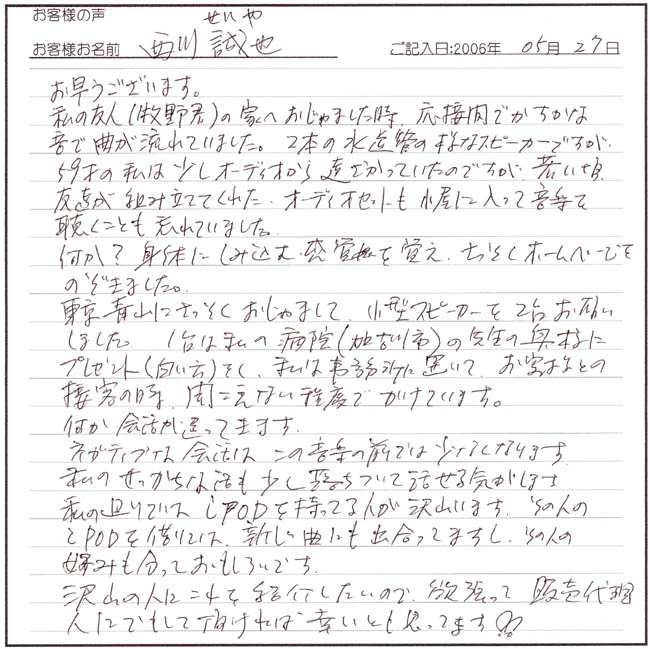 お客様の声
せいや
お客様お名前 西川 誠也 ご記入日:2006年 05月 27日
お早うございます。
私の友人(牧野君)の家へおじゃました時、応接間でかすかな
音で曲が流れていました。2本の水道管の様なスピーカーですが、
59才の私は少しオーディオから遠ざかっていたのですが、若い頃、
友達が組み立ててくれた、オーディオセットも小屋に入って音楽を
聴くことも忘れていました。
何か?身体にしみ込む感覚を覚え、さっそくホームページを
のぞきました。
東京青山にさっそくおじゃまして、小型スピーカーを2台お願い
しました。1台は私の病院(加古川市)の先生の奥様に
プレゼント(白い方)をし、私は事務所に置いて、お客さまとの
接客の時、聞こえない程度でかけています。
何か会話が違ってきます。
ネガティブな会話は この音楽の前では少なくなります。
私のせっかちな話も少し落ちついて話せる気がします
私の廻りでは iPODを持ってる人が沢山います、その人の
iPODを借りては、新しい曲にも出合ってますし、その人の
好みも分っておもしろいです。
沢山の人にこれを紹介したいので、欲張って 販売代理
人にでもして頂ければ幸いとも思ってます